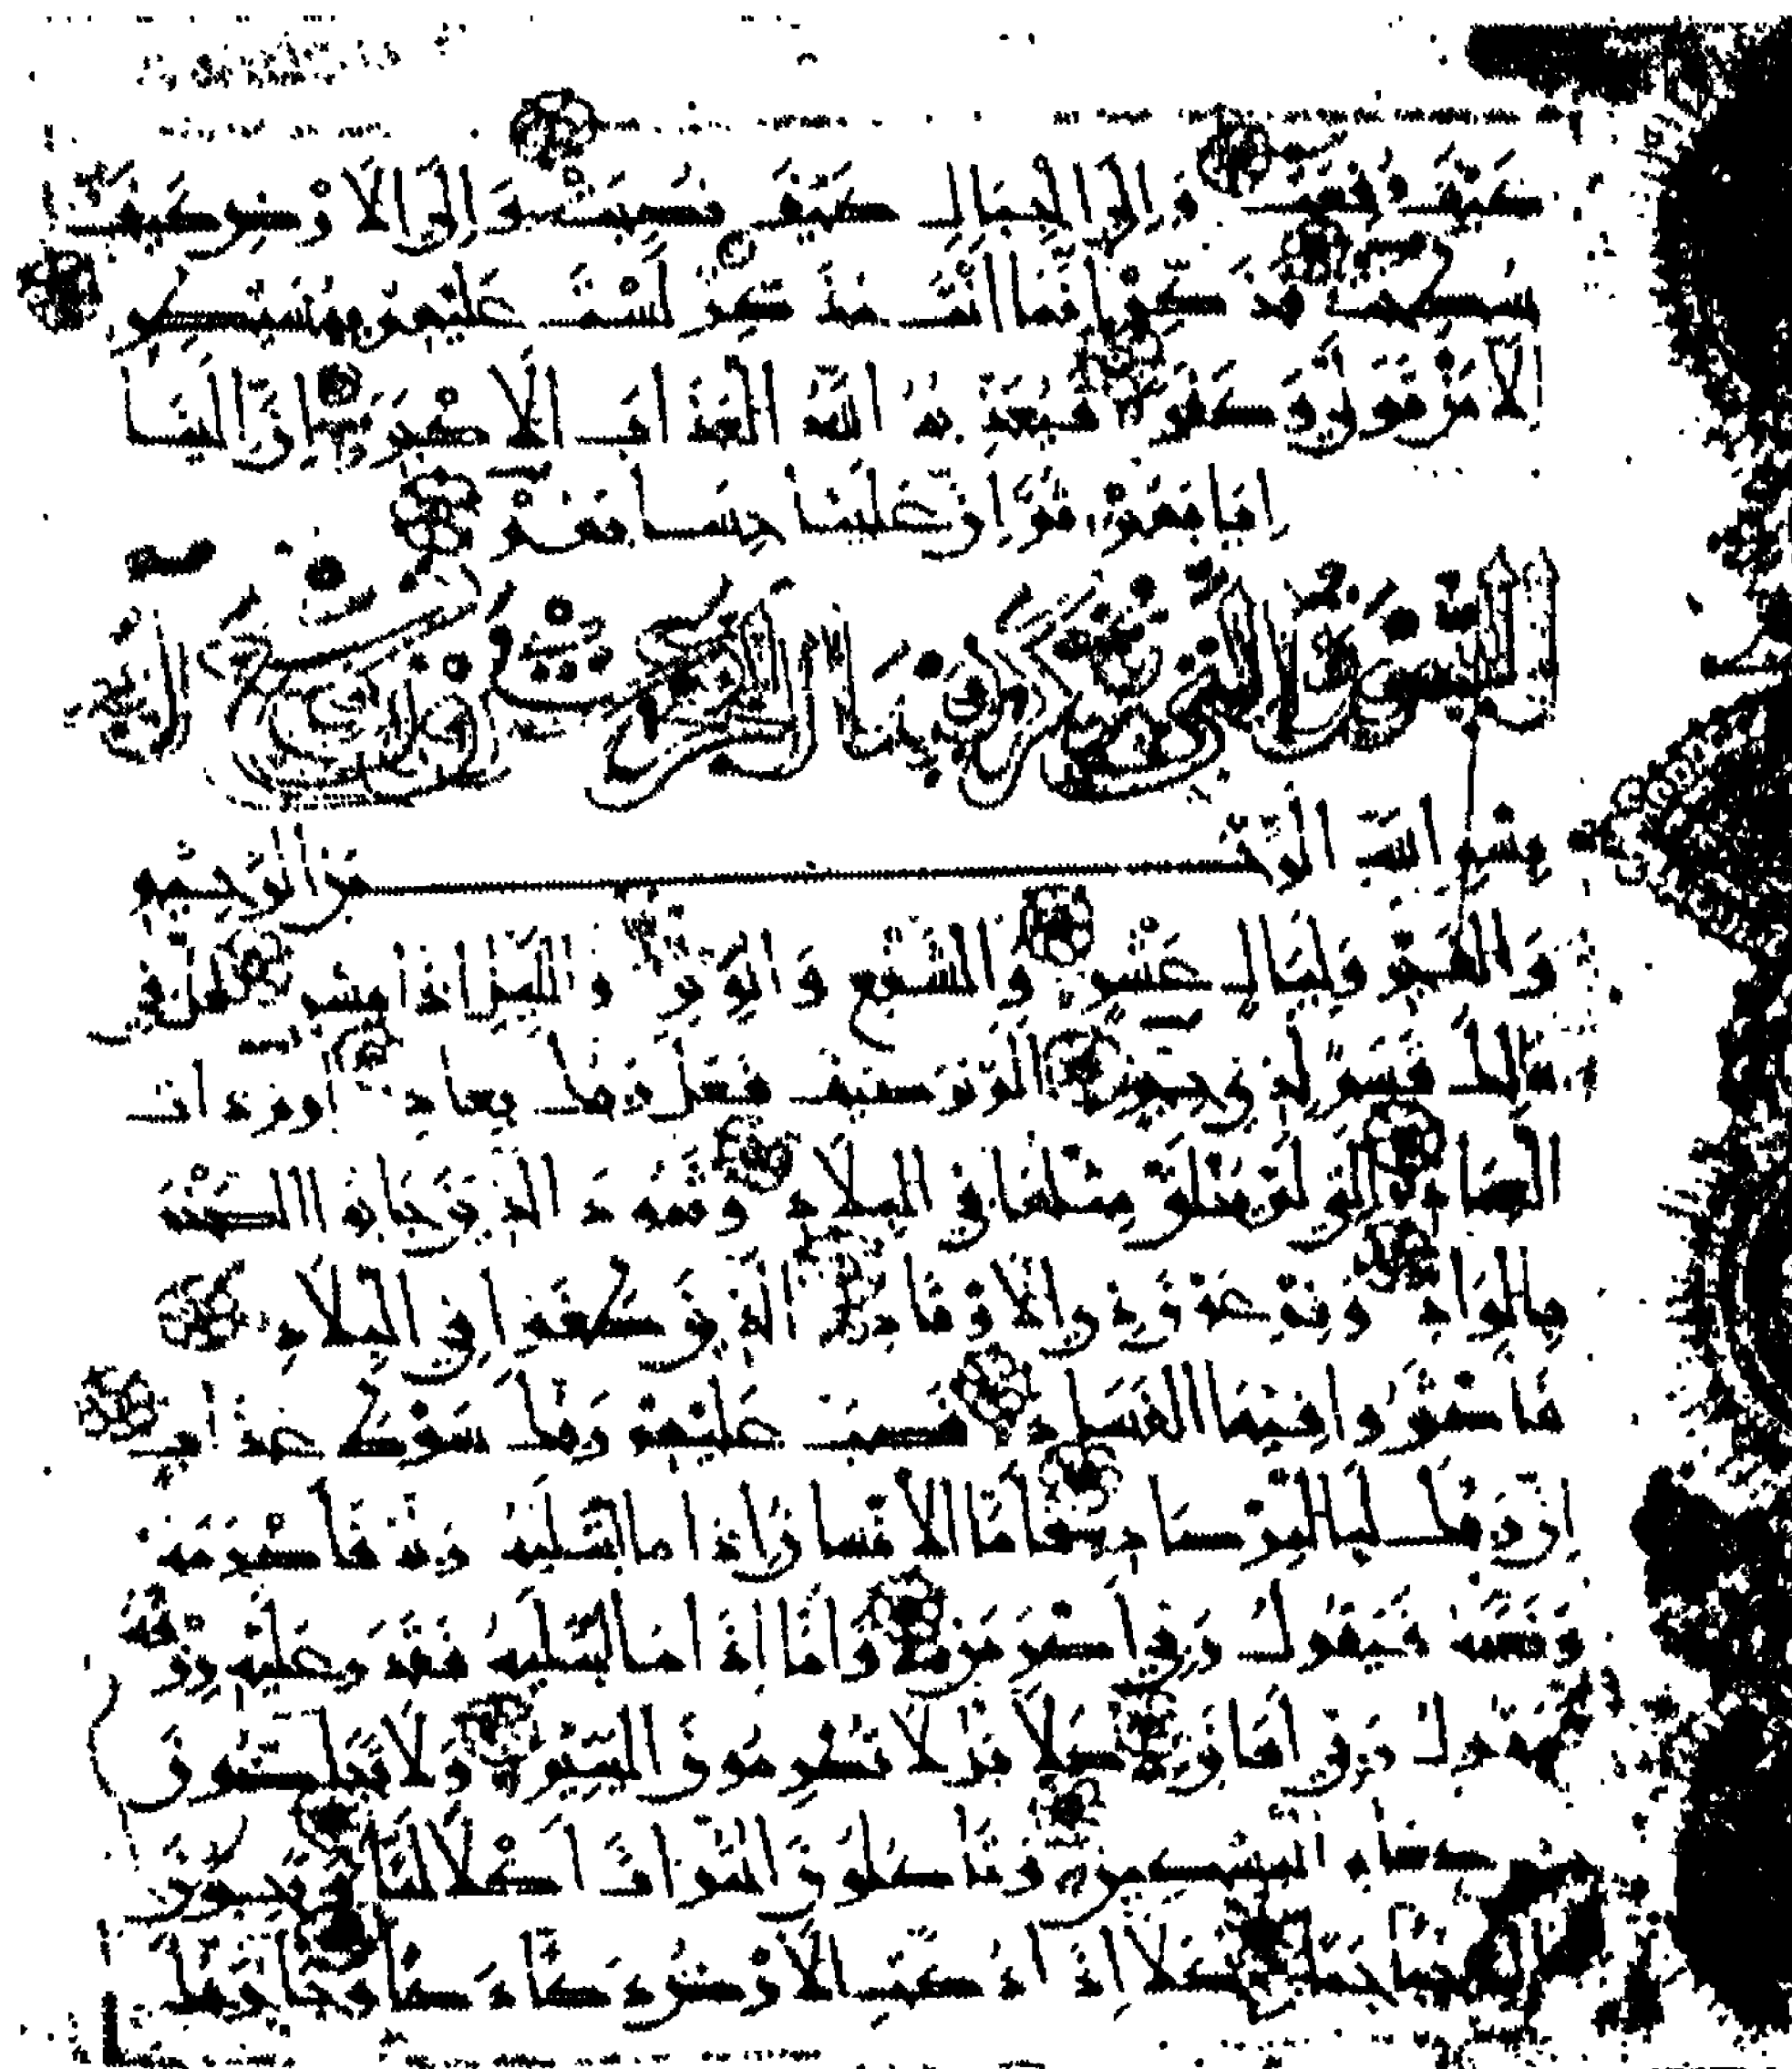 كيف رفعت وإلى الجبال كيف نصبت وإلى الأرض كيف
سطحت فذكر إنما أنت مذكر لست عليهم بمصيطر
إلا من تولى وكفر فيعذبه الله العذاب الأكبر إن إلينا
إيابهم ثم إن علينا حسابهم
السورة التي يذكر فيها
بسم الله الرحمن الرحيم
والفجر وليال عشر والشفع والوتر واليل إذا يسر هل في
ذلك قسم لذي حجر ألم تر كيف فعل ربك بعاد إرم ذات
العماد التي لم يخلق مثلها في البلاد وثمود الذين جابوا الصخر
بالواد وفرعون ذي الأوتاد الذين طغوا في البلاد
فأكثروا فيها الفساد فصب عليهم ربك سوط عذاب
إن ربك لبالمرصاد فأما الإنسان إذا ما ابتليه ربه فأكرمه
ونعمه فيقول ربي أكرمن وأما إذا ما ابتليه فقدر عليه رزقه
فيقول ربي أهانن كلا بل لا تكرمون اليتيم ولا تحضون
على طعام المسكين وتأكلون التراث أكلا لما وتحبون
المال حبا جما كلا إذا دكت الأرض دكا دكا وجا ربك